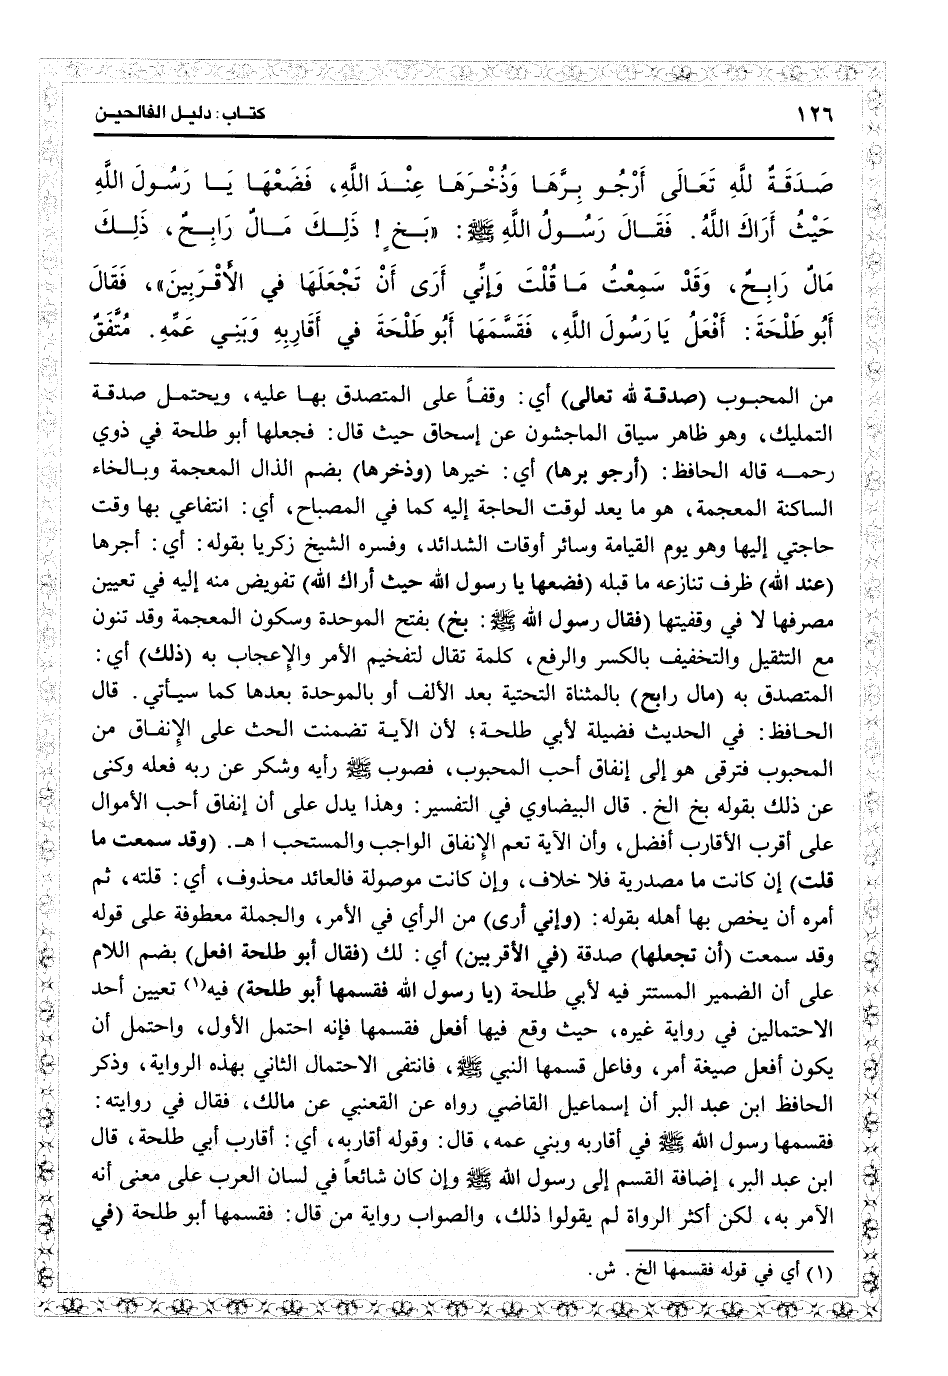 ١٢٦
كتاب: دليل الفالحين
صَدَقَةٌ للَّهِ تَعَالَى أَرْجُو بِرَّهَا وَذُخْرَهَا عِنْدَ اللَّهِ، فَضَعْهَا يَا رَسُولَ اللَّهِ
حَيْثُ أَرَاكَ اللَّهُ. فَقَالَ رَسُولُ اللَّهِ ﷺ: «بَخٍ! ذَلِكَ مَالٌ رَابِحٌ، ذَلِكَ
مَالٌ رَابِحٌ، وَقَدْ سَمِعْتُ مَا قُلْتَ وَإِنِّي أَرَى أَنْ تَجْعَلَهَا في الأَقْرَبِينَ»، فَقَالَ
أَبُو طَلْحَةَ: أَفْعَلُ يَا رَسُولَ اللَّهِ، فَقَسَّمَهَا أَبُو طَلْحَةَ في أَقَارِبِهِ وَبَنِي عَمِّهِ. مُتَّفَقٌ
من المحبوب (صدقة لله تعالى) أي: وقفاً على المتصدق بها عليه، ويحتمل صدقة
التمليك، وهو ظاهر سياق الماجشون عن إسحاق حيث قال: فجعلها أبو طلحة في ذوي
رحمه قاله الحافظ: (أرجو برها) أي: خيرها (وذخرها) بضم الذال المعجمة وبالخاء
الساكنة المعجمة، هو ما يعد لوقت الحاجة إليه كما في المصباح، أي: انتفاعي بها وقت
حاجتي إليها وهو يوم القيامة وسائر أوقات الشدائد، وفسره الشيخ زكريا بقوله: أي: أجرها
(عند الله) ظرف تنازعه ما قبله (فضعها يا رسول الله حيث أراك الله) تفويض منه إليه في تعيين
مصرفها لا في وقفيتها (فقال رسول الله ﷺ: بخ) بفتح الموحدة وسكون المعجمة وقد تنون
مع التثقيل والتخفيف بالكسر والرفع، كلمة تقال لتفخيم الأمر والإعجاب به (ذلك) أي:
المتصدق به (مال رابح) بالمثناة التحتية بعد الألف أو بالموحدة بعدها كما سيأتي. قال
الحافظ: في الحديث فضيلة لأبي طلحة؛ لأن الآية تضمنت الحث على الإنفاق من
المحبوب فترقى هو إلى إنفاق أحب المحبوب، فصوب ﷺ رأيه وشكر عن ربه فعله وكنى
عن ذلك بقوله بخ الخ. قال البيضاوي في التفسير: وهذا يدل على أن إنفاق أحب الأموال
على أقرب الأقارب أفضل، وأن الآية تعم الإنفاق الواجب والمستحب ا هـ. (وقد سمعت ما
قلت) إن كانت ما مصدرية فلا خلاف، وإن كانت موصولة فالعائد محذوف، أي: قلته، ثم
أمره أن يخص بها أهله بقوله: (وإني أرى) من الرأي في الأمر، والجملة معطوفة على قوله
وقد سمعت (أن تجعلها) صدقة (في الأقربين) أي: لك (فقال أبو طلحة افعل) بضم اللام
على أن الضمير المستتر فيه لأبي طلحة (يا رسول الله فقسمها أبو طلحة) فيه(١) تعيين أحد
الاحتمالين في رواية غيره، حيث وقع فيها أفعل فقسمها فإنه احتمل الأول، واحتمل أن
يكون أفعل صيغة أمر، وفاعل قسمها النبي ﷺ، فانتفى الاحتمال الثاني بهذه الرواية، وذكر
الحافظ ابن عبد البر أن إسماعيل القاضي رواه عن القعنبي عن مالك، فقال في روايته:
فقسمها رسول الله ﷺ في أقاربه وبني عمه، قال: وقوله أقاربه، أي: أقارب أبي طلحة، قال
ابن عبد البر، إضافة القسم إلى رسول الله ﷺ وإن كان شائعاً في لسان العرب على معنى أنه
الآمر به، لكن أكثر الرواة لم يقولوا ذلك، والصواب رواية من قال: فقسمها أبو طلحة (في
(١) أي في قوله فقسمها الخ. ش.